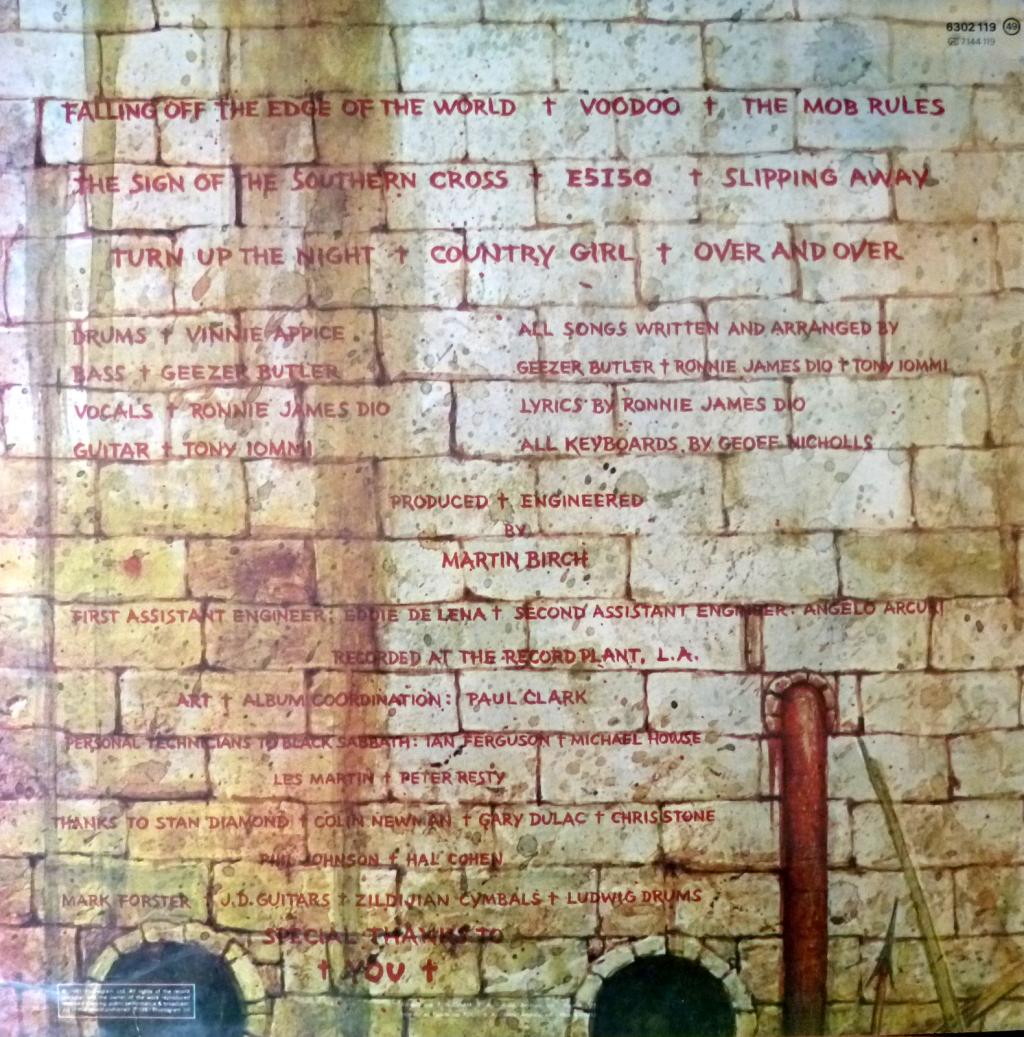 6302 119 49
7144 119
FALLING OFF THE EDGE OF THE WORLD † VOODOO † THE MOB RULES
THE SIGN OF THE SOUTHERN CROSS † E5150 † SLIPPING AWAY
TURN UP THE NIGHT † COUNTRY GIRL † OVER AND OVER
DRUMS † VINNIE APPICE
BASS † GEEZER BUTLER
VOCALS † RONNIE JAMES DIO
GUITAR † TONY IOMMI
ALL SONGS WRITTEN AND ARRANGED BY
GEEZER BUTLER † RONNIE JAMES DIO † TONY IOMMI
LYRICS BY RONNIE JAMES DIO
ALL KEYBOARDS BY GEOFF NICHOLLS
PRODUCED † ENGINEERED
BY
MARTIN BIRCH
FIRST ASSISTANT ENGINEER: EDDIE DE LENA † SECOND ASSISTANT ENGINEER: ANGELO ARCURI
RECORDED AT THE RECORD PLANT, L.A.
ART † ALBUM COORDINATION: PAUL CLARK
PERSONAL TECHNICIANS TO BLACK SABBATH: IAN FERGUSON † MICHAEL HOWSE
LES MARTIN † PETER RESTY
THANKS TO STAN DIAMOND † COLIN NEWMAN † GARY DULAC † CHRIS STONE
PHIL JOHNSON † HAL COHEN
MARK FORSTER † J.D. GUITARS † ZILDIJIAN CYMBALS † LUDWIG DRUMS
SPECIAL THANKS TO
† YOU †